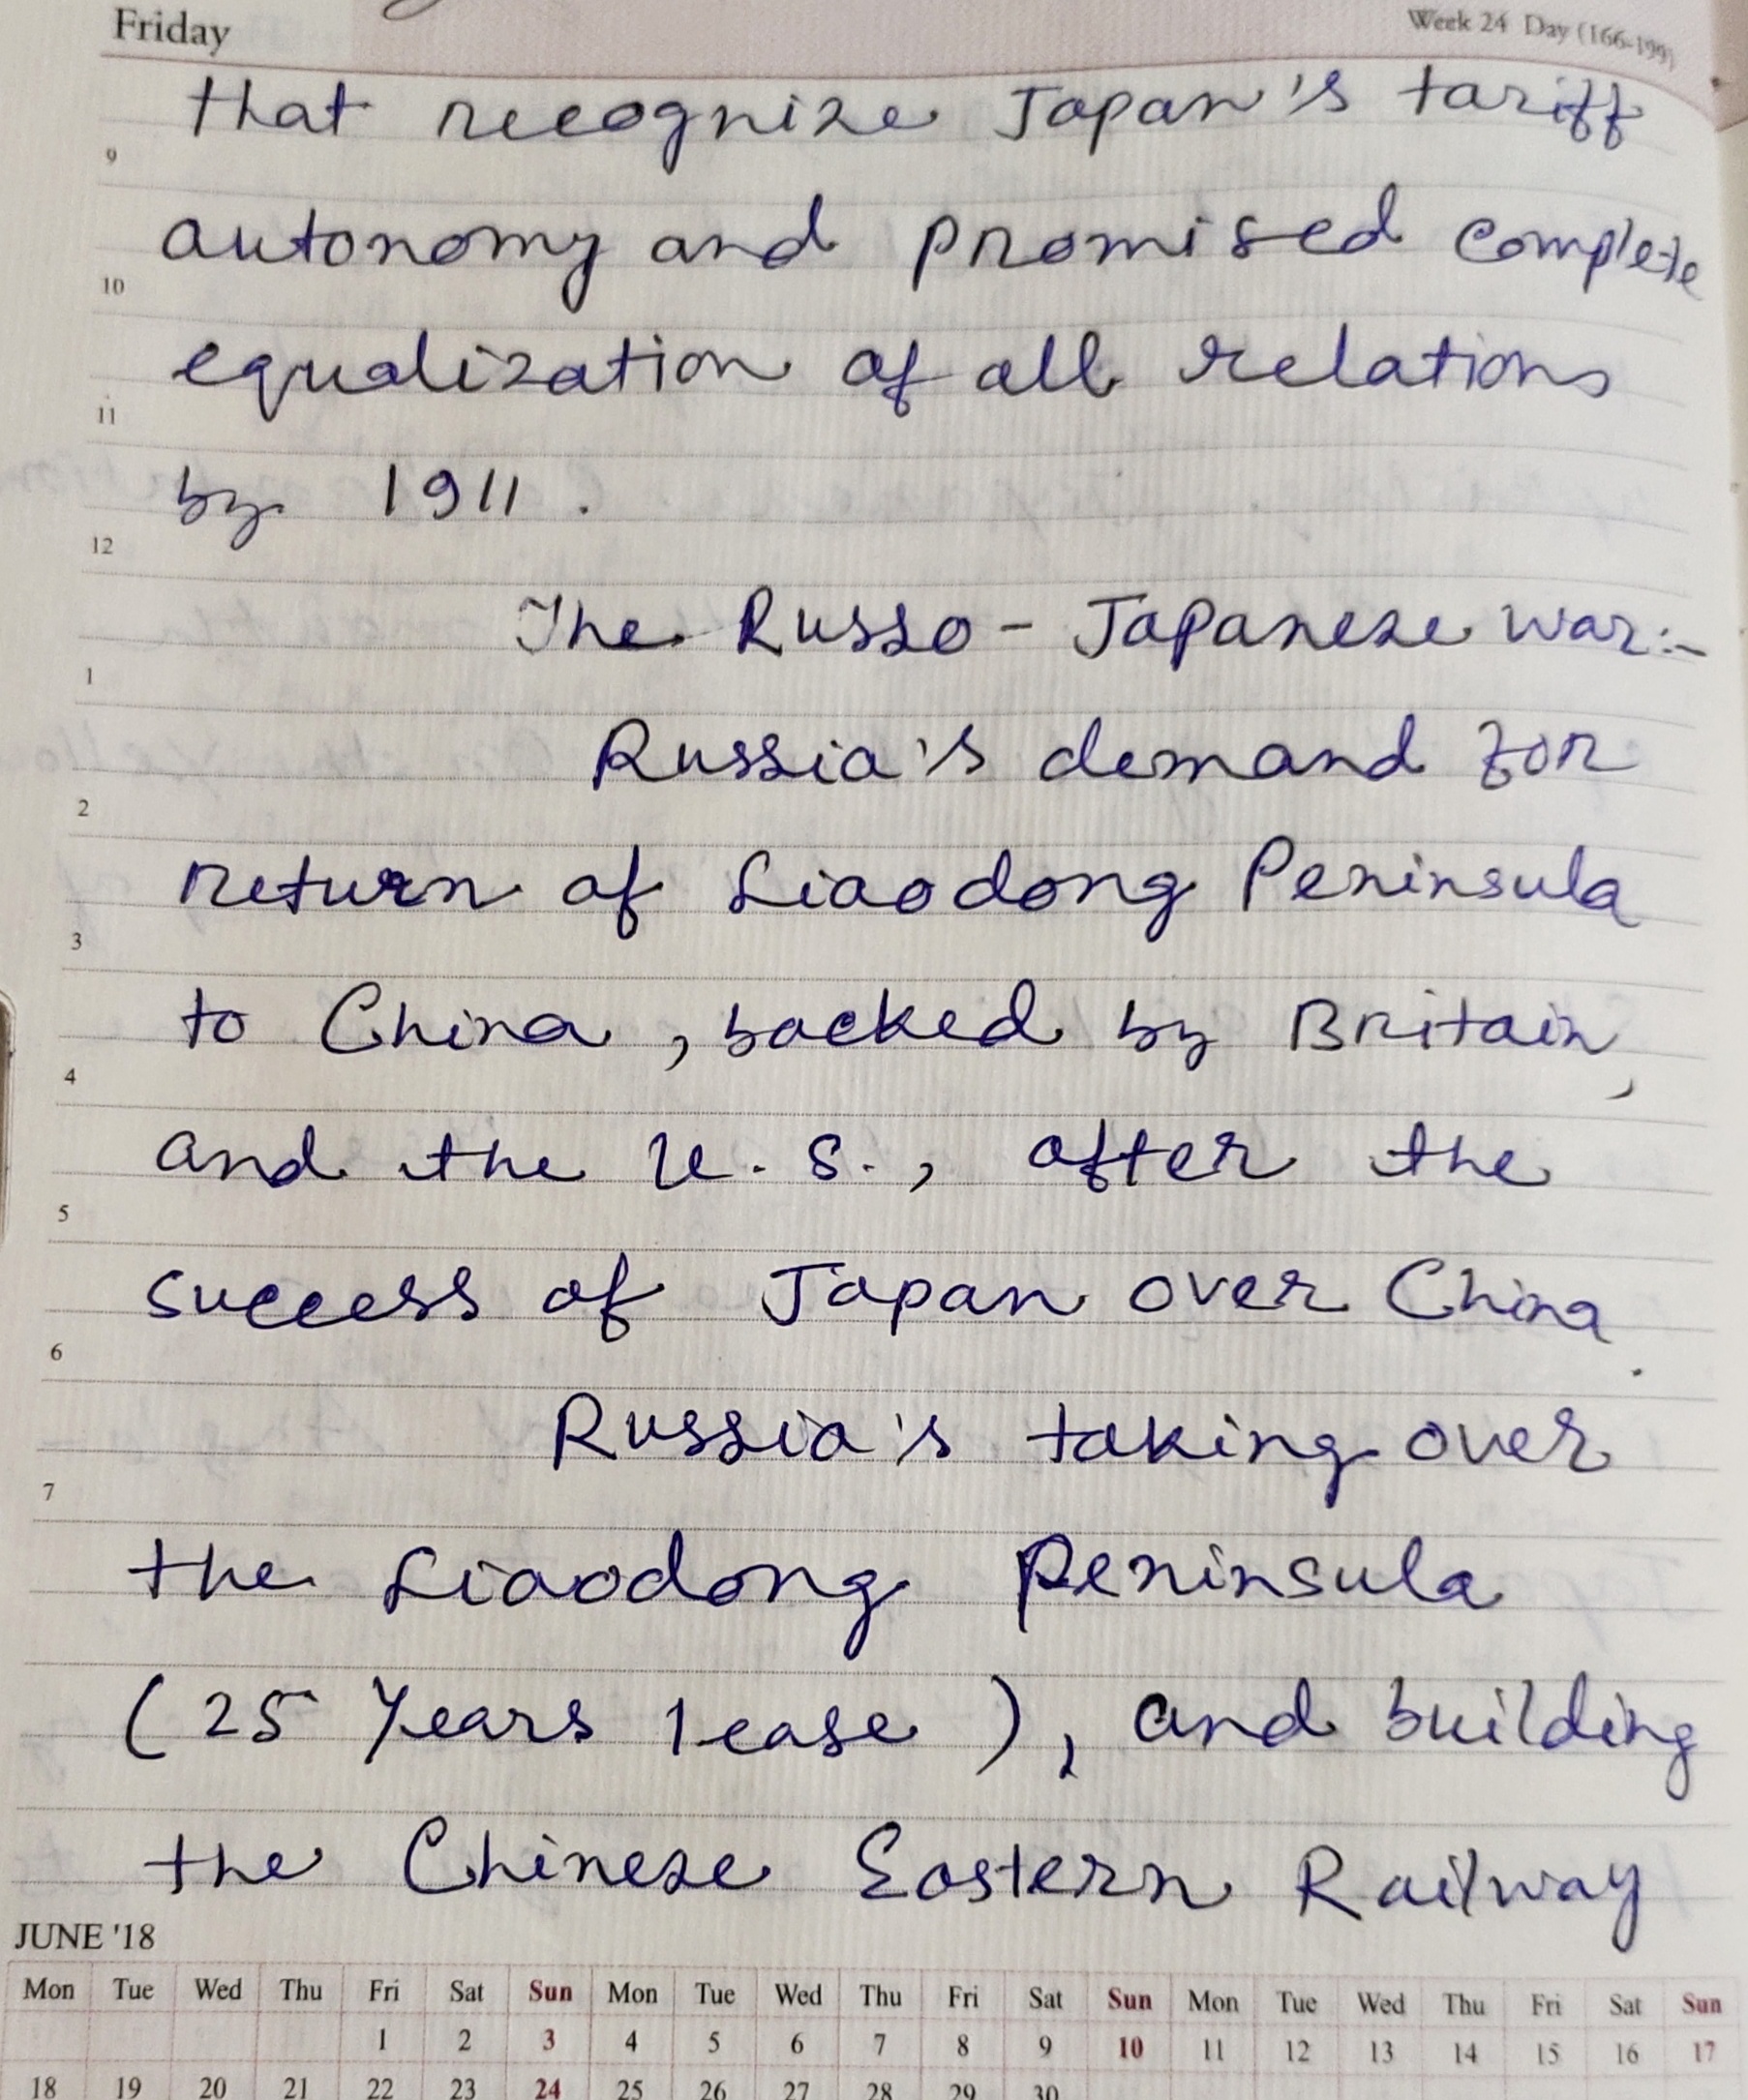 Friday Week 24 Day (166-199)
that recognize Japan's tariff
9
autonomy and promised complete
10
equalization of all relations
11
by 1911.
12
The Russo - Japanese war:-
1
Russia's demand for
2
return of Liaodong Peninsula
3
to China, backed by Britain,
4
and the U.S., after the
5
success of Japan over China.
6
Russia's taking over
7
the Liaodong Peninsula
(25 Years lease), and building
the Chinese Eastern Railway
JUNE '18
Mon Tue Wed Thu Fri Sat Sun Mon Tue Wed Thu Fri Sat Sun Mon Tue Wed Thu Fri Sat Sun
1 2 3 4 5 6 7 8 9 10 11 12 13 14 15 16 17
18 19 20 21 22 23 24 25 26 27 28 29 30